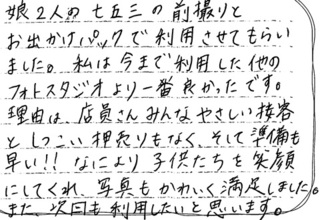 娘2人の七五三の前撮りと
お出かけパックで利用させてもらい
ました。私は今まで利用した他の
フォトスタジオより一番良かったです。
理由は、店員さんみんなやさしい接客
としつこい押売りもなく、そして準備も
早い!! なにより子供たちを笑顔
にしてくれ、写真もかわいく満足しました。
また、次回も利用したいと思います。